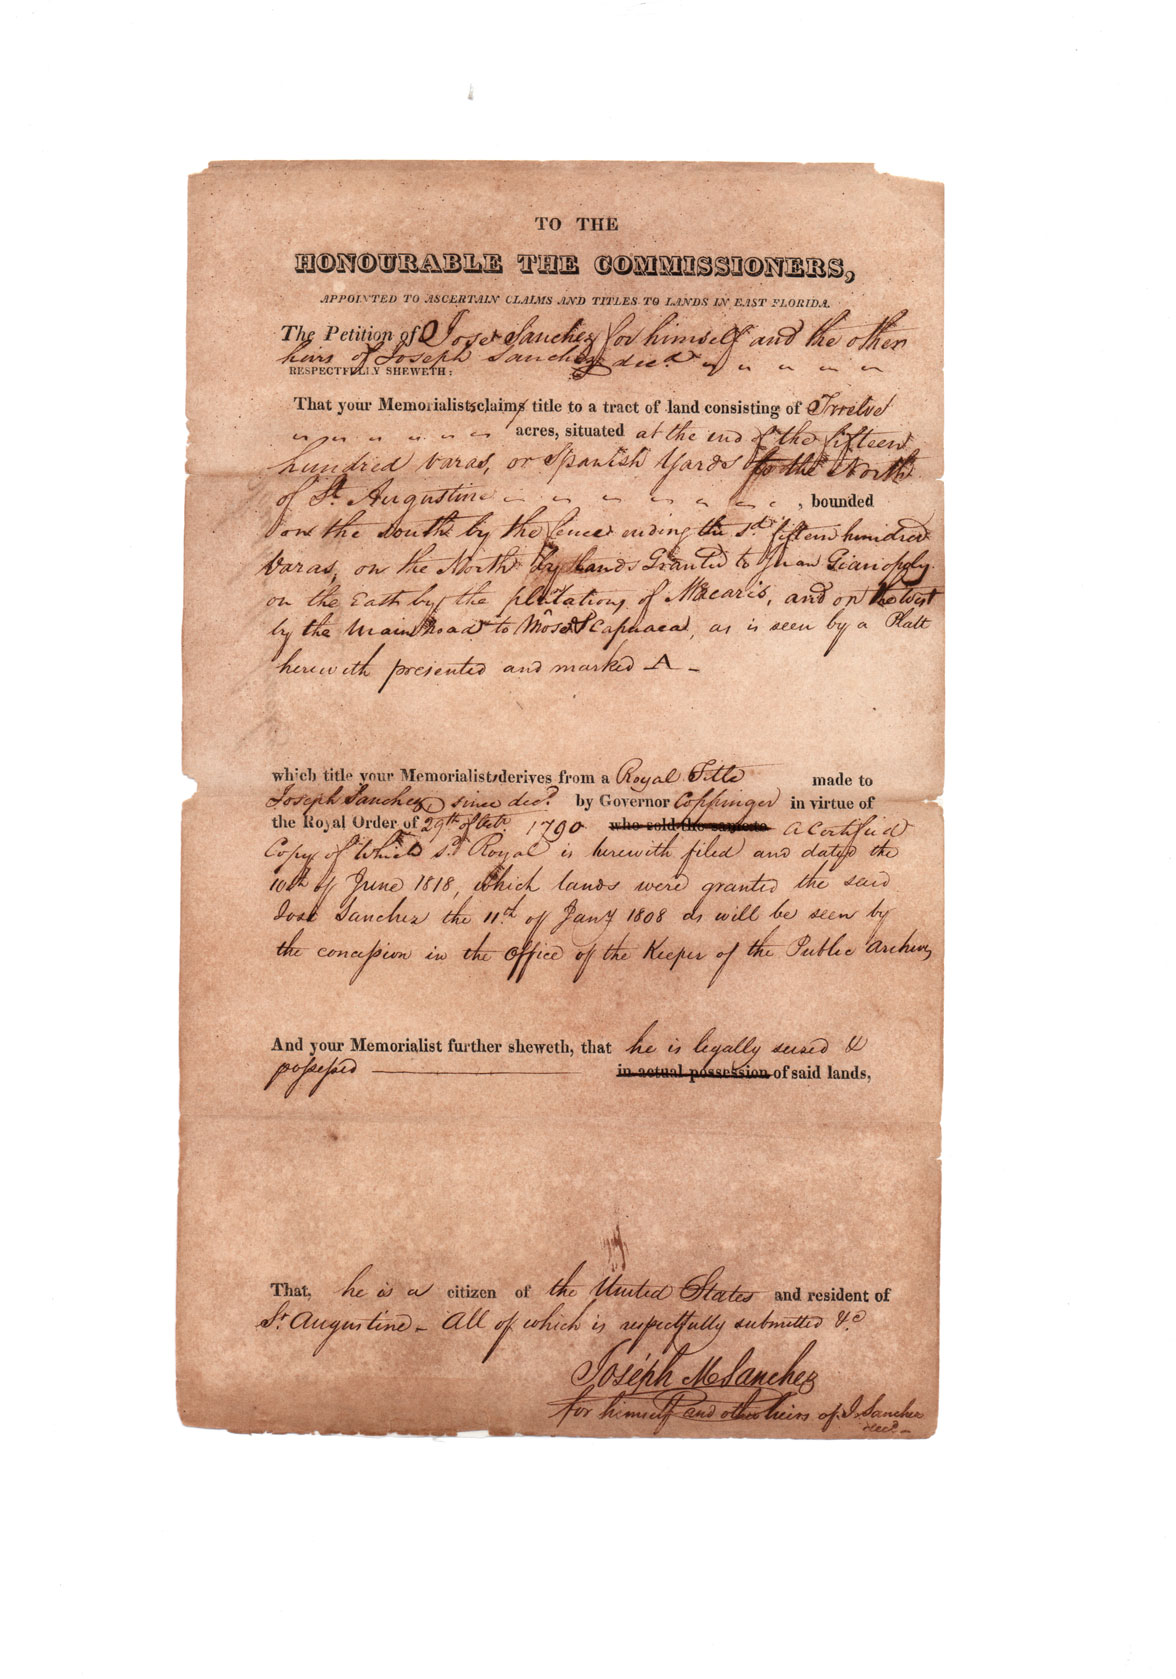 TO THE
HONOURABLE THE COMMISSIONERS,
APPOINTED TO ASCERTAIN CLAIMS AND TITLES TO LANDS IN EAST FLORIDA.
The Petition of Jose Sanchez for himself and the other
heirs of Joseph Sanchez decd.
RESPECTFULLY SHEWETH:
That your Memorialists claim title to a tract of land consisting of Twelve
acres, situated at the end of the fifteen
hundred varas, or Spanish Yards to the North
of St. Augustine , bounded
on the south by the fence ending the sd. fifteen hundred
varas, on the North by lands Granted to Juan Gianoply
on the East by the plantations of Macaris, and on the West
by the Main Road to Mosa, as is seen by a Platt
herewith presented and marked A
which title your Memorialists derives from a Royal Title made to
Joseph Sanchez, since decd. by Governor Coppinger in virtue of
the Royal Order of 29th of Octr. 1790 who sold the same to a Certified
Copy of Which sd. Royal is herewith filed and dated the
10th of June 1818, which lands were granted the said
José Sanchez the 11th of Jany 1808 as will be seen by
the concession in the Office of the Keeper of the Public Archives
And your Memorialist further sheweth, that he is legally seized &
possessed in actual possession of said lands,
That, he is a citizen of the United States and resident of
St. Augustine - All of which is respectfully submitted &c
Joseph M Sanchez
for himself and other heirs of J. Sanchez
decd.